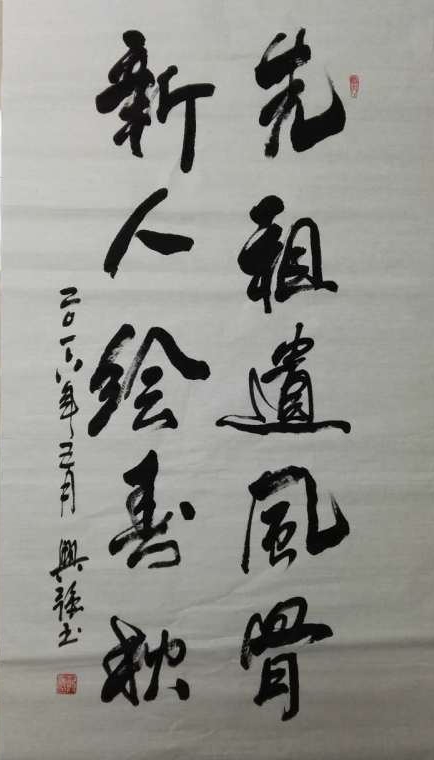 先祖遺風骨
新人绘春秋
二〇一六年三月 興强书